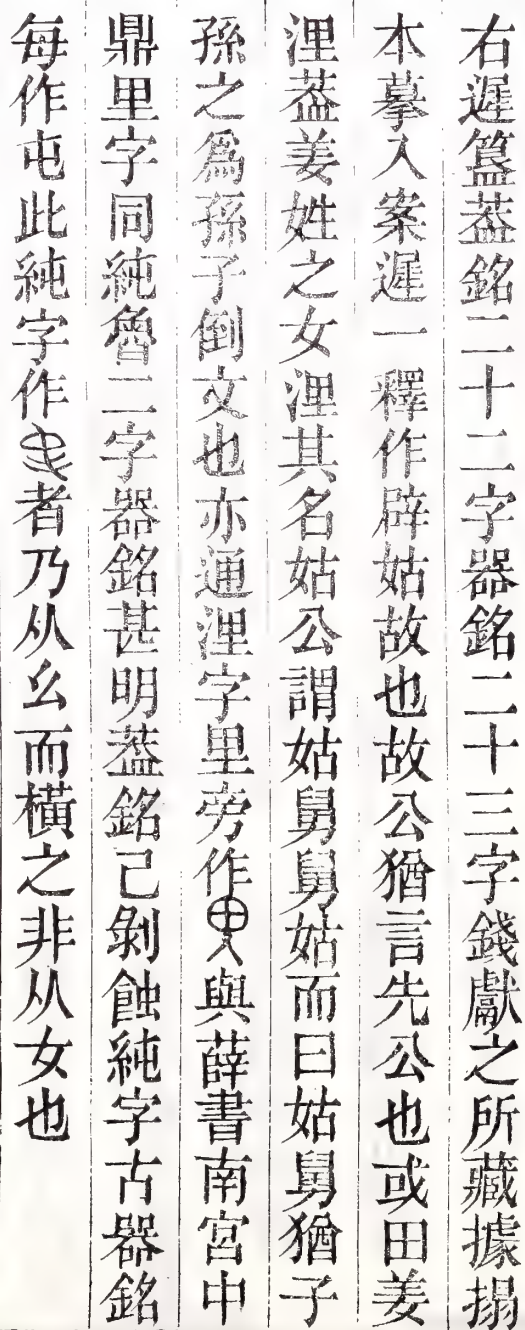 右遟簋葢銘二十二字器銘二十三字錢獻之所藏據搨
本摹入案遟一釋作辟姑故也故公猶言先公也或田姜
浬葢姜姓之女浬其名姑公謂姑舅舅姑而曰姑舅猶子
孫之爲孫子倒文也亦通浬字里旁作與薛書南宮中
鼎里字同純魯二字器銘甚明葢銘已剝蝕純字古器銘
每作屯此純字作者乃从幺而橫之非从女也